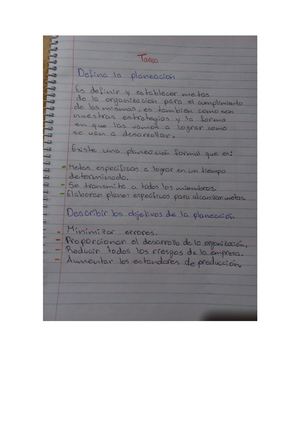 Tarea
Defina la planeación
Es definir y establecer metas
de la organización para el cumplimiento
de las mismas, es también como son
nuestras estrategias y la forma
en que las vamos a lograr como
se van a desarrollar.
Existe una planeación formal que es:
- Metas especificas a lograr en un tiempo
determinado.
- Se transmite a todos los miembros.
- Elaboran planes especificos para alcanzar metas.
Describir los objetivos de la planeación
- Minimizar errores.
- Proporcionar el desarrollo de la organización.
- Reducir todos los riesgos de la empresa.
- Aumentar los estandares de producción.